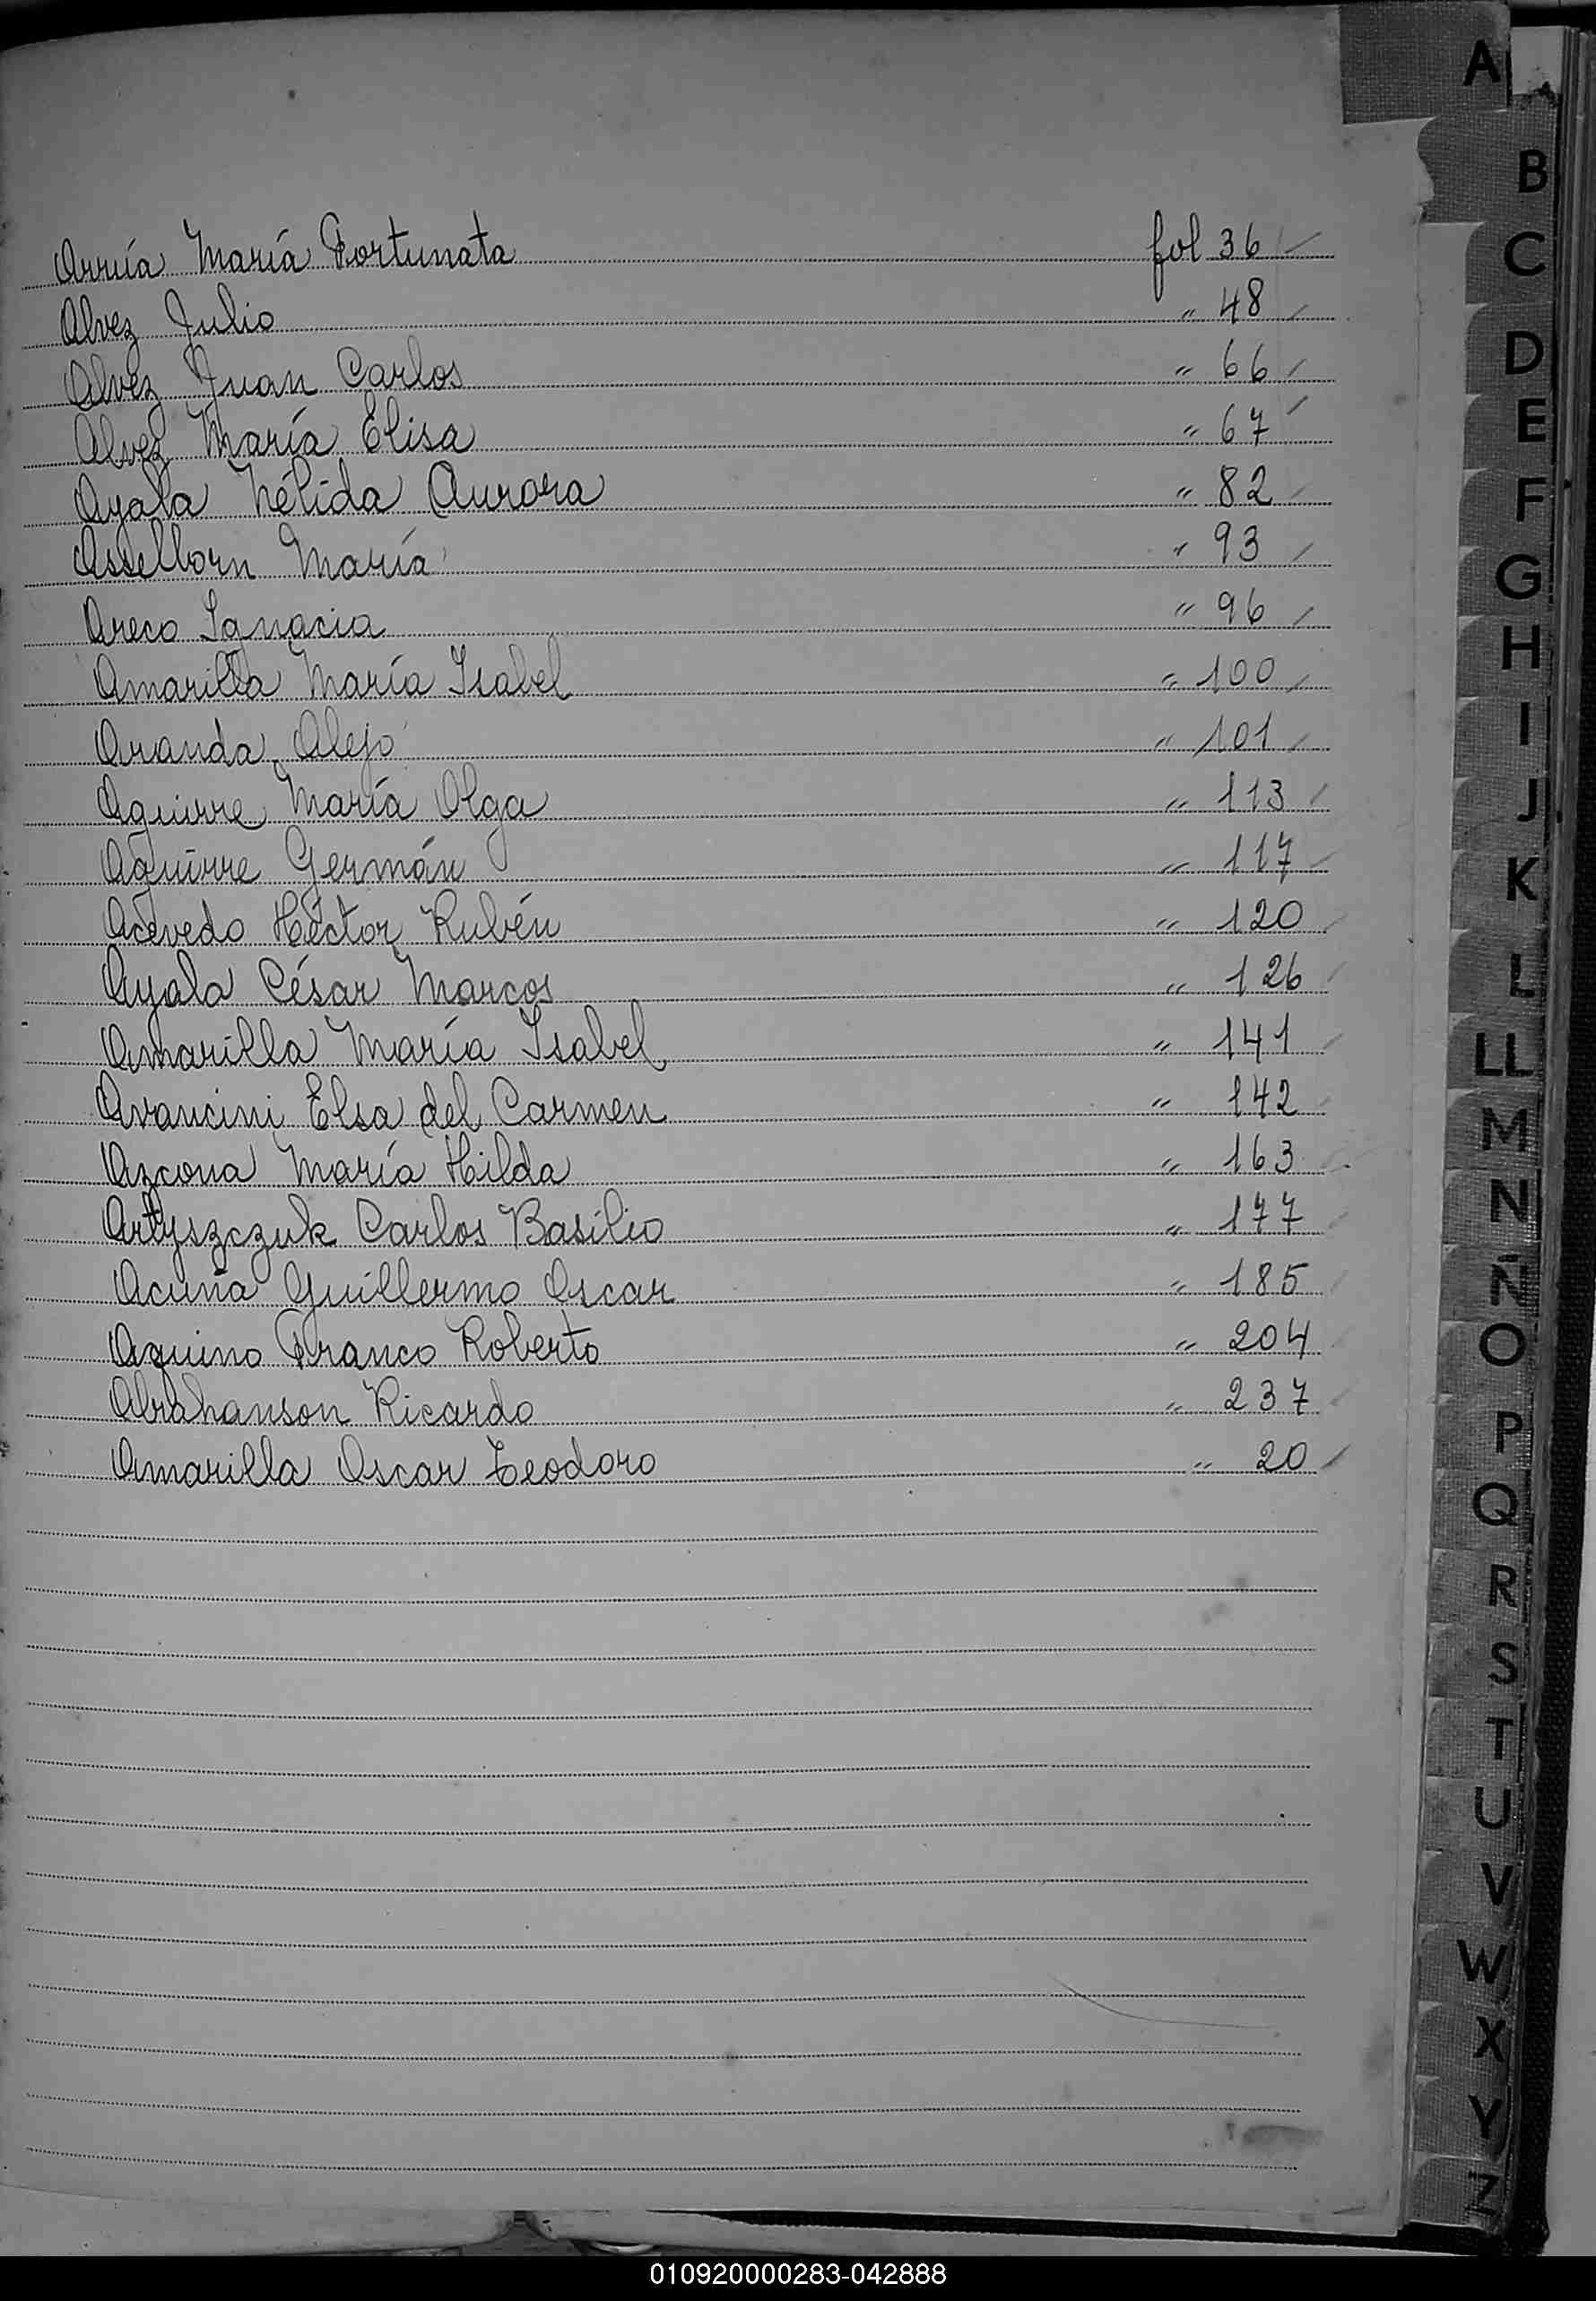 Arrúa María Fortunata fol 36
Alvez Julio " 48
Alvez Juan Carlos " 66
Alvez María Elisa " 67
Ayala Nélida Aurora " 82
Asselborn María " 93
Areco Ignacia " 96
Amarilla María Isabel " 100
Aranda Alejo " 101
Aguirre María Olga " 113
Aguirre Germán " 117
Acevedo Héctor Rubén " 120
Ayala César Marcos " 126
Amarilla María Isabel " 141
Avancini Elsa del Carmen " 142
Azcona María Hilda " 163
Artyszczuk Carlos Basilio " 177
Acuña Guillermo Oscar " 185
Aquino Franco Roberto " 204
Abrahanson Ricardo " 237
Amarilla Oscar Teodoro " 20
A
B
C
D
E
F
G
H
I
J
K
L
LL
M
N
Ñ
O
P
Q
R
S
T
U
V
W
X
Y
Z
010920000283-042888